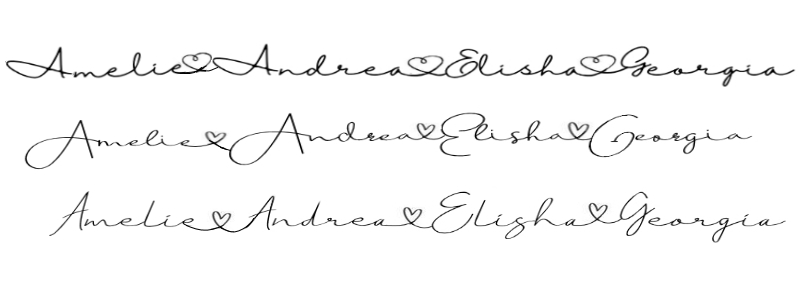 Amelie♡Andrea♡Elisha♡Georgia
Amelie♡Andrea♡Elisha♡Georgia
Amelie♡Andrea♡Elisha♡Georgia